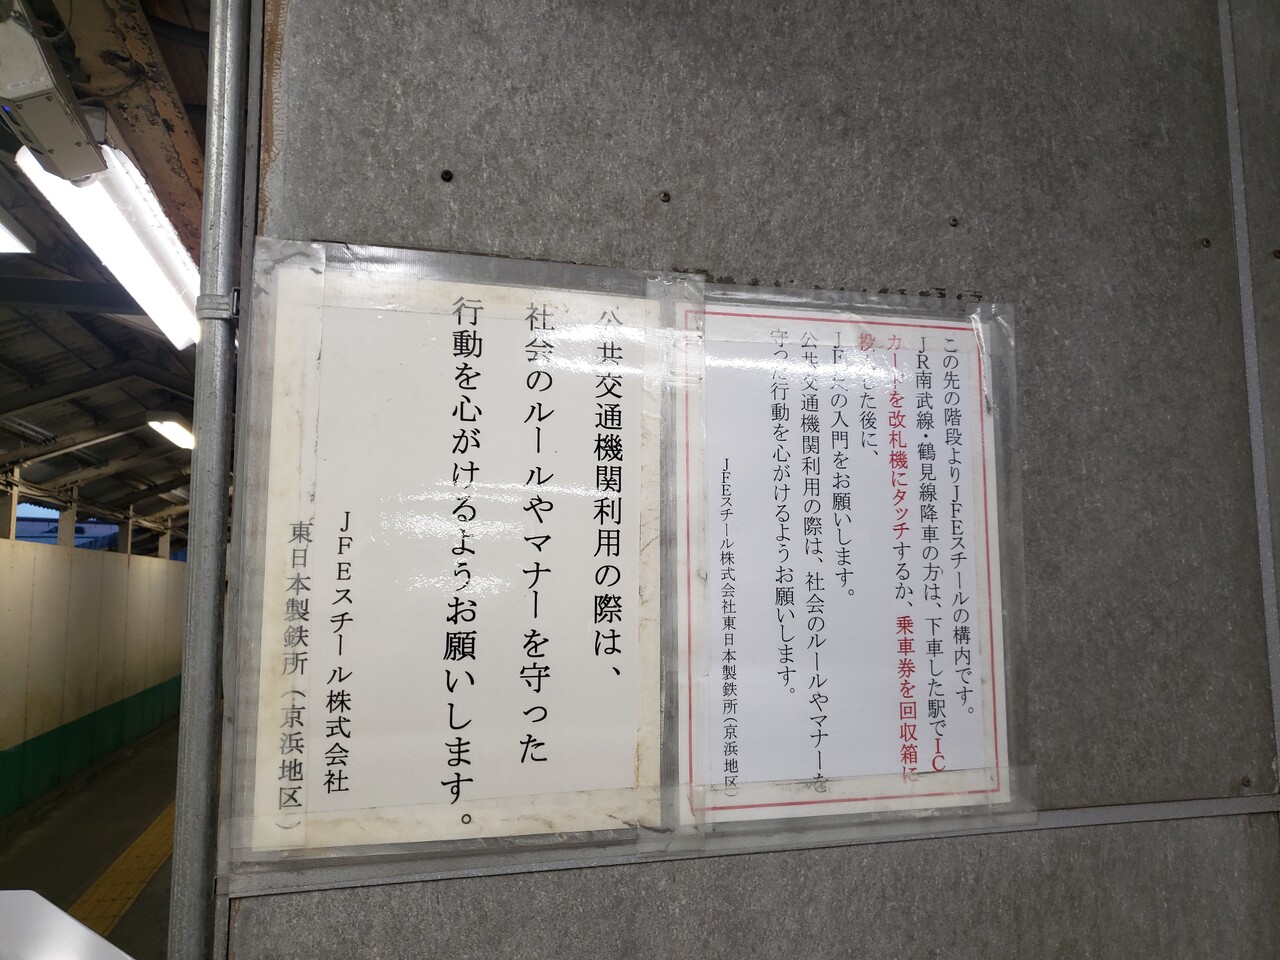 この先の階段よりJFEスチールの構内です。
JR南武線・鶴見線降車の方は、下車した駅でIC
カードを改札機にタッチするか、乗車券を回収箱に
投入した後に、
JFEへの入門をお願いします。
公共交通機関利用の際は、社会のルールやマナーを
守った行動を心がけるようお願いします。
JFEスチール株式会社東日本製鉄所(京浜地区)
公共交通機関利用の際は、
社会のルールやマナーを守った
行動を心がけるようお願いします。
JFEスチール株式会社
東日本製鉄所(京浜地区)